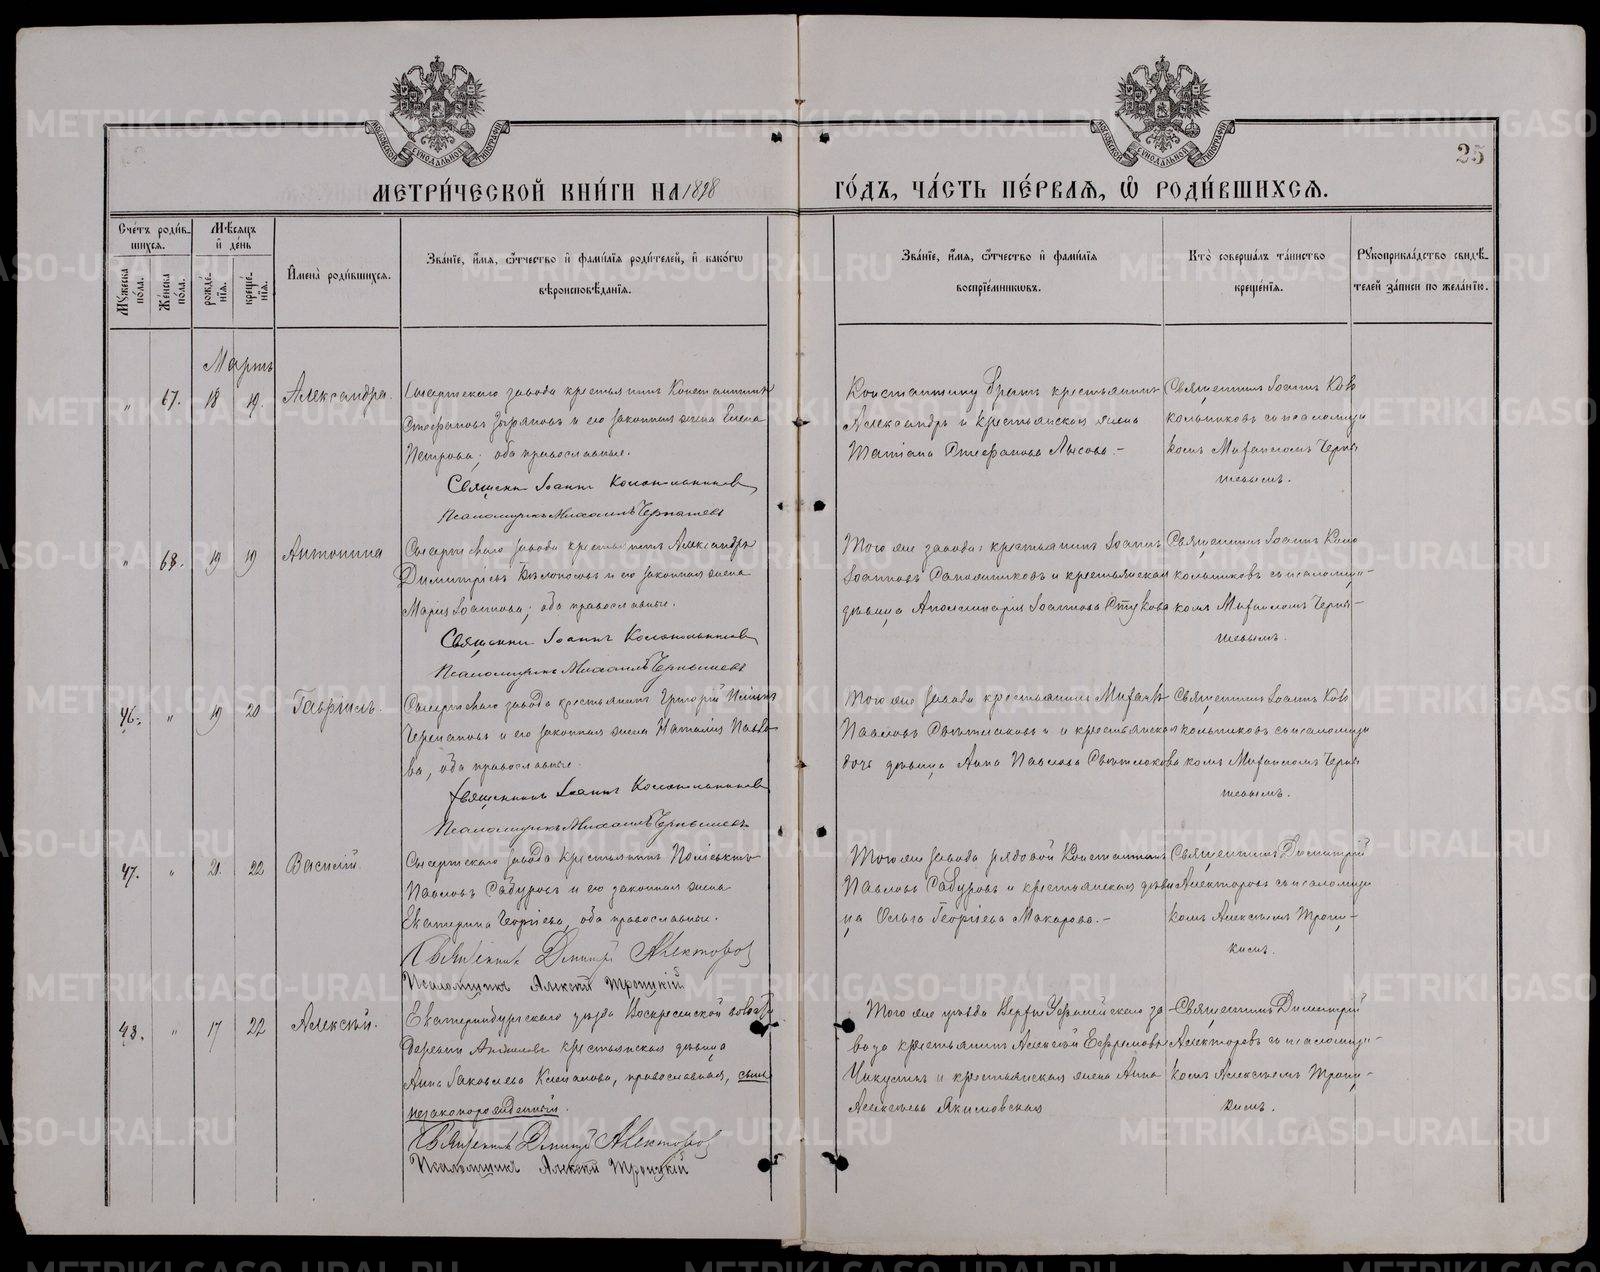 МЕТРИ́ЧЕСКОЙ КНИ́ГИ НА 1898
ГО́ДЪ, ЧА́СТЬ ПЕ́РВАѦ, Ѿ РОДИ́ВШИХСѦ.
25
Сче́тъ роди́в-
шихсѧ.
Му́жеска по́ла.
Же́нска по́ла.
Мѣсѧцъ
и̂ де́нь
рожде́нїѧ.
креще́нїѧ.
И̂мена̀ роди́вшихсѧ.
Зва́нїе, и̂́мѧ, ѻ҆́тчество и̂ фами́лїѧ роди́телей, и̂ како́гѡ
вѣроисповѣ́данїѧ.
Зва́нїе, и̂́мѧ, ѻ҆́тчество и̂ фами́лїѧ
воспрїе́мникѡвъ.
Кто̀ соверша́лъ та́инство
креще́нїѧ.
Рꙋкоприкла́дство свидѣ́-
телей за́писи по жела́нїю.
Мартъ
„ 67. 18 19. Александра.
Сысертскаго завода крестьянинъ Константинъ
Стефановъ Зыряновъ и его законная жена Елена
Петрова, оба православные.
Священникъ Іоаннъ Колокольниковъ
Псаломщикъ Михаилъ Чернышевъ
Константину братъ крестьянинъ
Александръ и крестьянская жена
Татіана Стефанова Лысова.-
Священникъ Іоаннъ Коло
кольниковъ съ псаломщи
комъ Михаиломъ Черны
шевымъ.
„ 68. 19 19 Антонина
Сысертскаго завода крестьянинъ Александръ
Димитріевъ Бѣлоносовъ и его законная жена
Марія Іоаннова, оба православные.
Священникъ Іоаннъ Колокольниковъ
Псаломщикъ Михаилъ Чернышевъ
Того же завода: крестьянинъ Іоаннъ
Іоанновъ Сапожниковъ и крестьянская
дѣвица Аполлинарія Іоаннова
Священникъ Іоаннъ Коло
кольниковъ съ псаломщи-
комъ Михаиломъ Черны-
шевымъ.
46. „ 19 20 Гавріилъ.
Сысертскаго завода крестьянинъ Григорій
Черепановъ и его законная жена Наталія Павло
ва, оба православные.
Священникъ Іоаннъ Колокольниковъ
Псаломщикъ Михаилъ Чернышевъ
Того же завода крестьянинъ Михаилъ
Павловъ Свѣтлаковъ и крестьянская
дочь дѣвица Анна Павлова Свѣтлакова
Священникъ Іоаннъ Коло
кольниковъ съ псаломщи
комъ Михаиломъ Черны
шевымъ.
47. „ 21. 22 Василій.
Сысертскаго завода крестьянинъ Поліевктъ
Павловъ Сабуровъ и его законная жена
Екатерина Георгіева, оба православные.
Священникъ Димитрій Алекторовъ
Псаломщикъ Алексѣй Троицкій
Того же завода рядовой Константинъ
Павловъ Сабуровъ и крестьянская дѣви
ца Ольга Георгіева Макарова.-
Священникъ Димитрій
Алекторовъ съ псаломщи
комъ Алексѣемъ Троиц-
кимъ.
48. „ 17 22 Алексѣй.
Екатеринбургскаго уѣзда Воскресенской волости
деревни крестьянская дѣвица
Анна Іаковлева Клепалова, православная, сынъ
незаконорожденный.
Священникъ Димитрій Алекторовъ
Псаломщикъ Алексѣй Троицкій
Того же уѣзда Верхъ Уфалейскаго за
вода крестьянинъ Алексѣй Ефремовъ
Чикуринъ и крестьянская жена Анна
Алексѣева Якимовская
Священникъ Димитрій
Алекторовъ съ псаломщи-
комъ Алексѣемъ Троиц-
кимъ.
METRIKI.GASO-URAL.RU